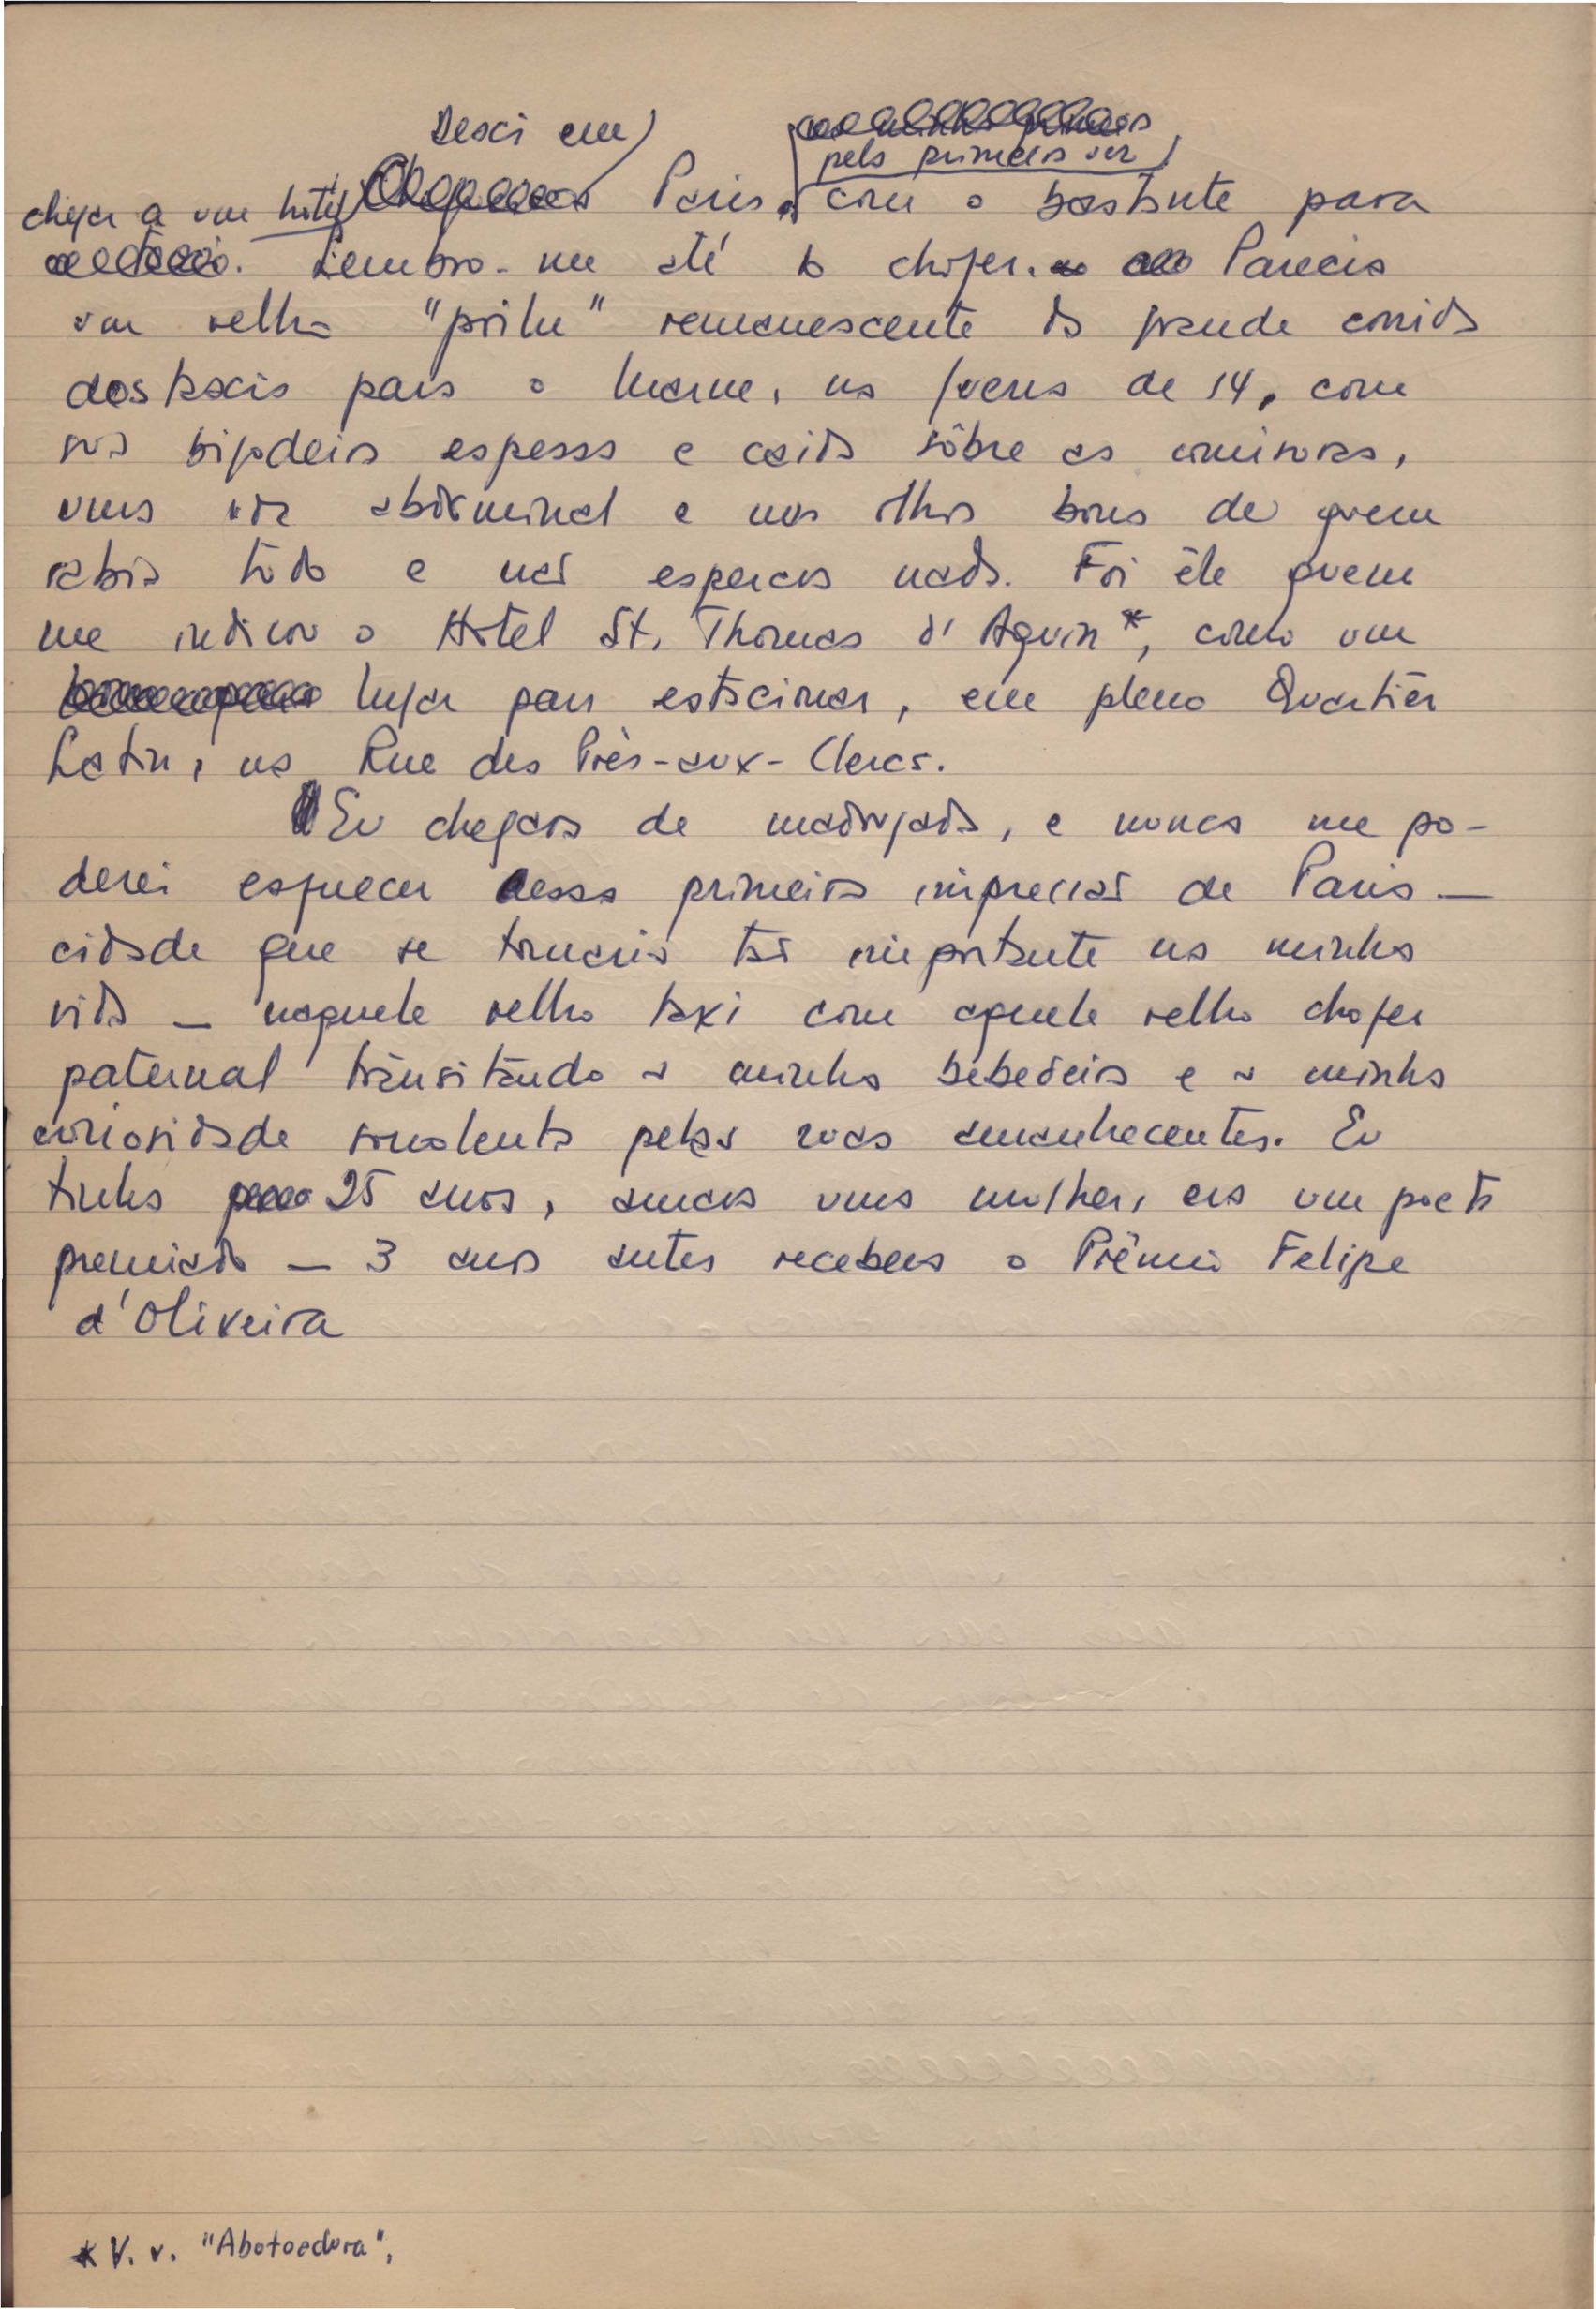 Desci em
pela primeira vez
chegar a um hotel Paris, com o bastante para
Lembro-me até do chofer. Parecia
um velho "poilu" remanescente da grande corrida
dos taxis para o Marne, na guerra de 14, com
seus bigodeira espessa e caida sôbre as comissuras,
uma voz abdominal e uns olhos bons de quem
sabia tudo e não esperava nada. Foi êle quem
me indicou o Hotel St. Thomas d'Aquin*, como um
lugar para estacionar, em pleno Quartier
Latin, na Rue des Près-aux-Clercs.
Eu chegara de madrugada, e nunca me po-
derei esquecer dessa primeira impressão de Paris —
cidade que se tornaria tão importante na minha
vida — naquele velho taxi com aquele velho chofer
paternal transitando a minha bebedeira e a minha
curiosidade sonolenta pelas ruas amanhecentes. Eu
tinha 25 anos, amava uma mulher, era um poeta
premiado — 3 anos antes recebera o Prêmio Felipe
d'Oliveira
* V. v. "Abotoadura",